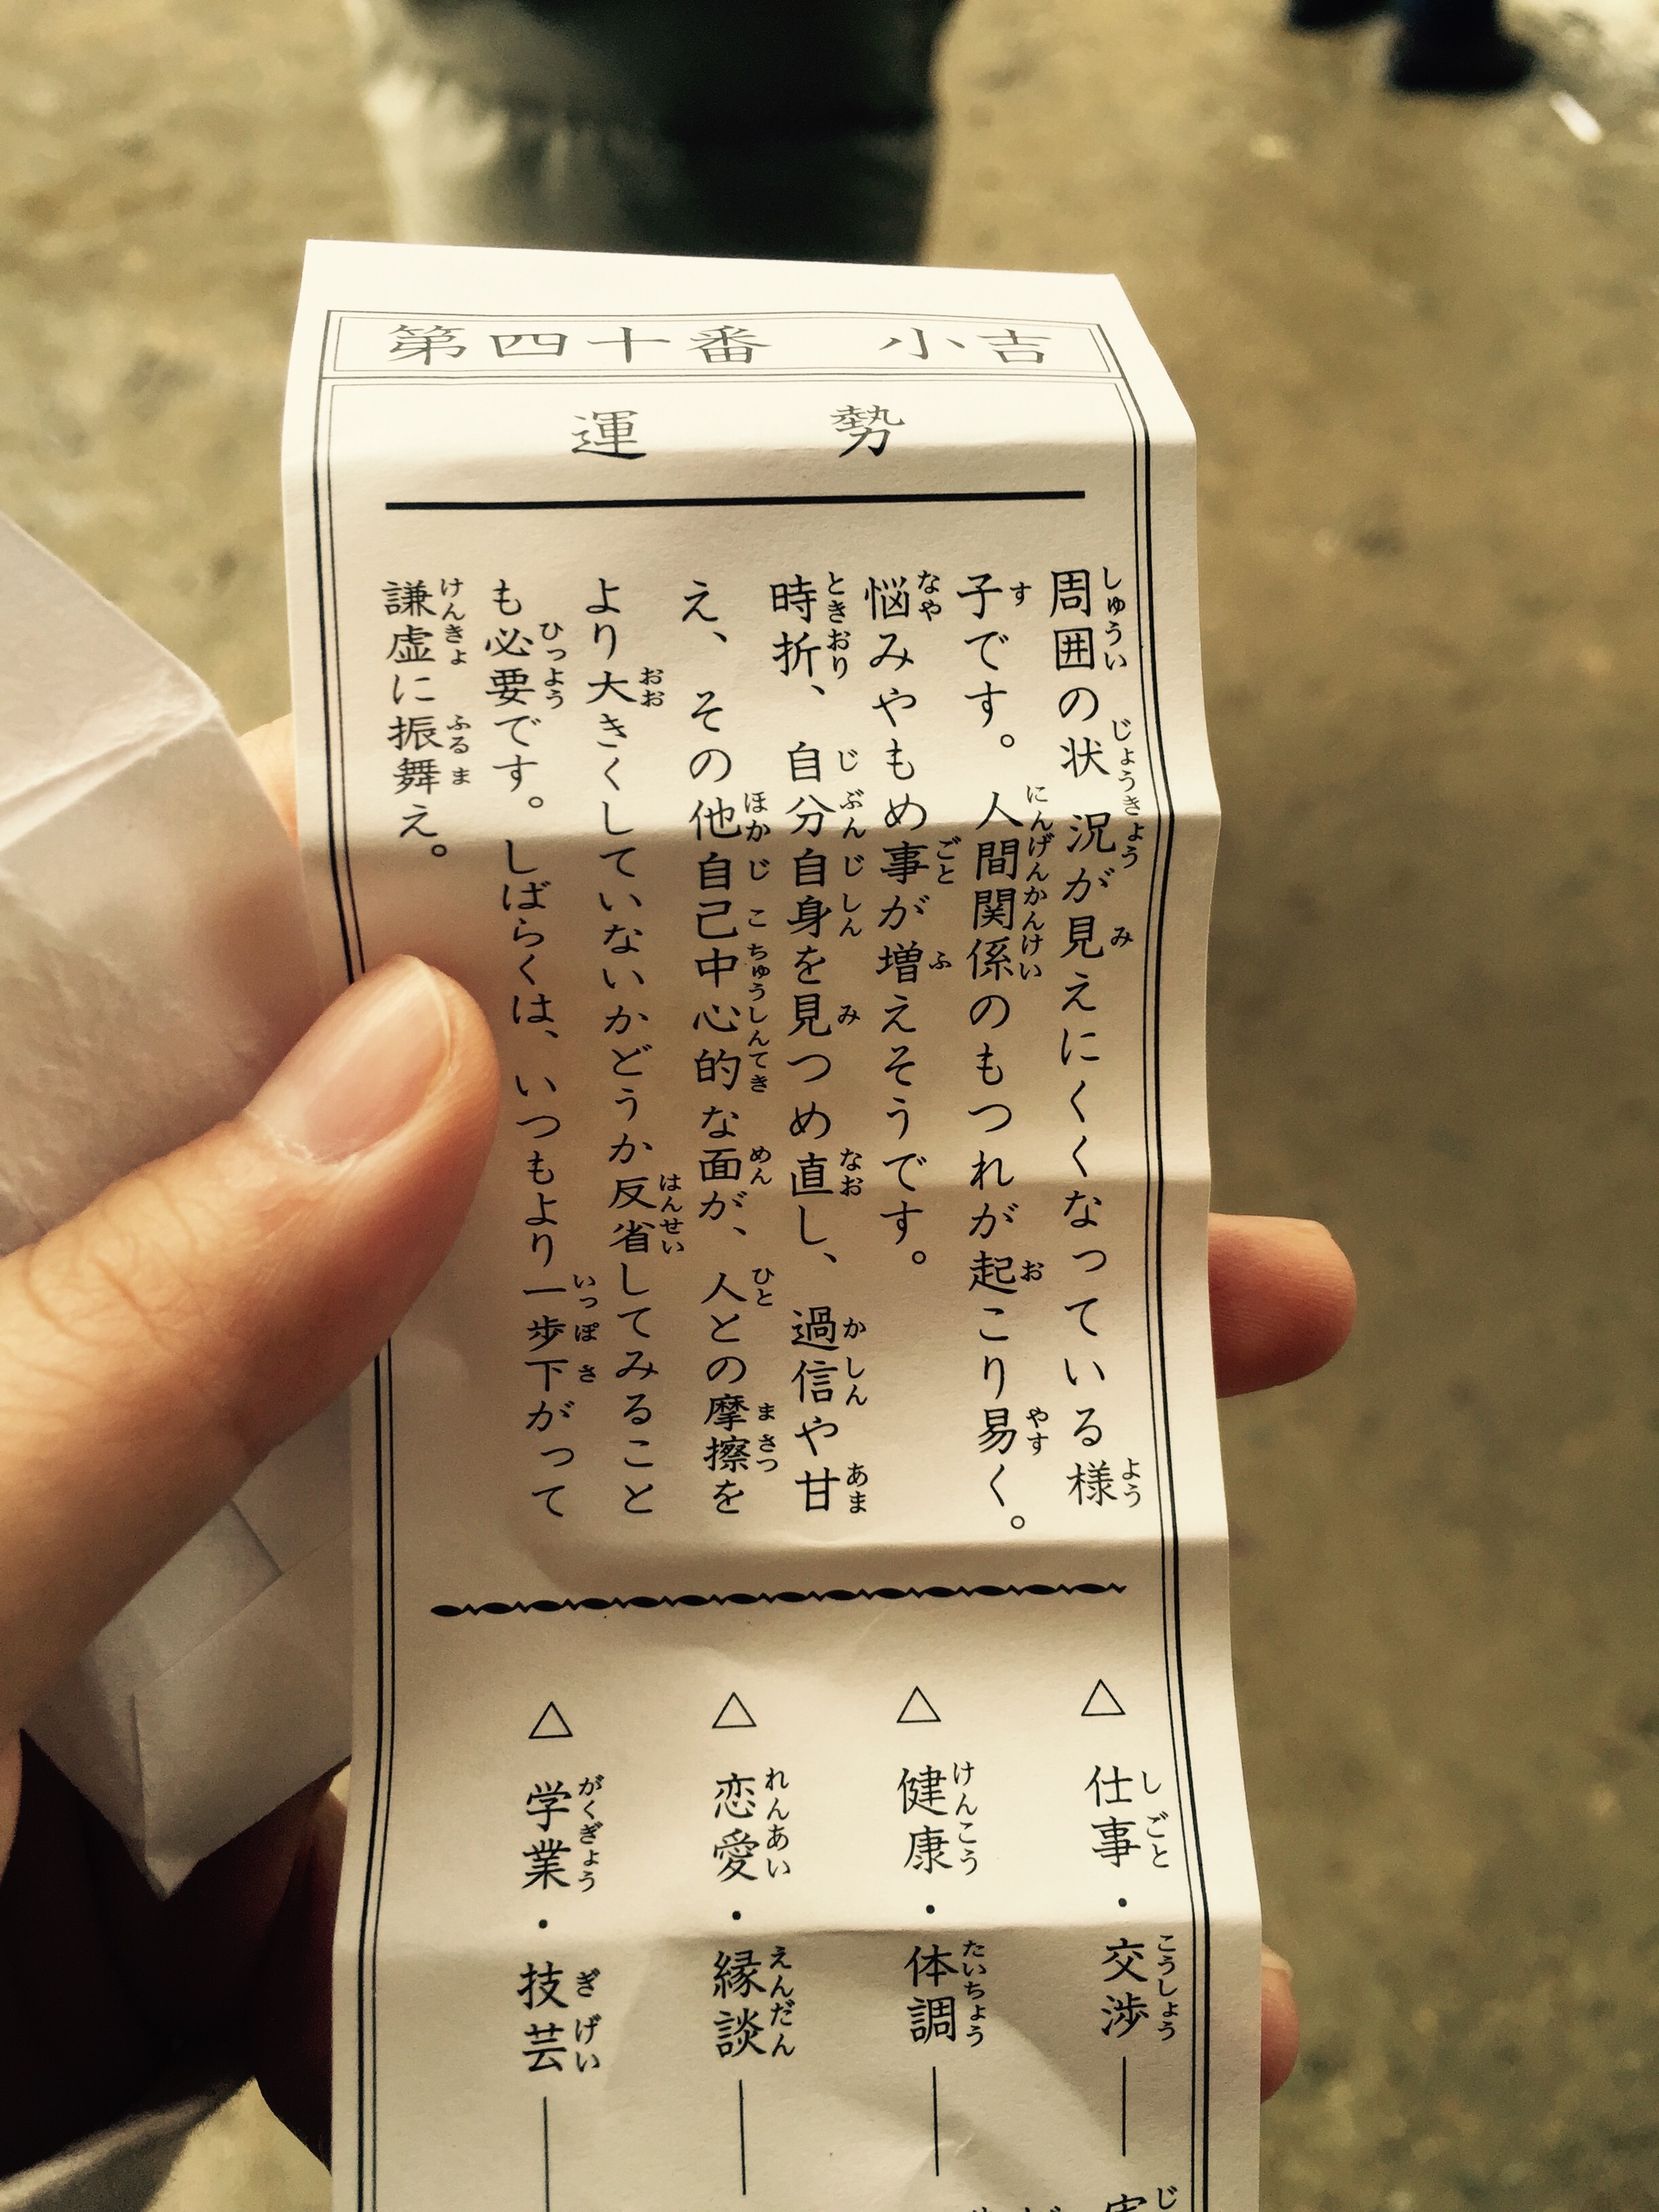 第四十番　小吉
運　勢
周囲の状況が見えにくくなっている様
子です。人間関係のもつれが起こり易く。
悩みやもめ事が増えそうです。
時折、自分自身を見つめ直し、過信や甘
え、その他自己中心的な面が、人との摩擦を
より大きくしていないかどうか反省してみること
も必要です。しばらくは、いつもより一歩下がって
謙虚に振舞え。
△ 仕事・交渉―
△ 健康・体調―
△ 恋愛・縁談―
△ 学業・技芸―